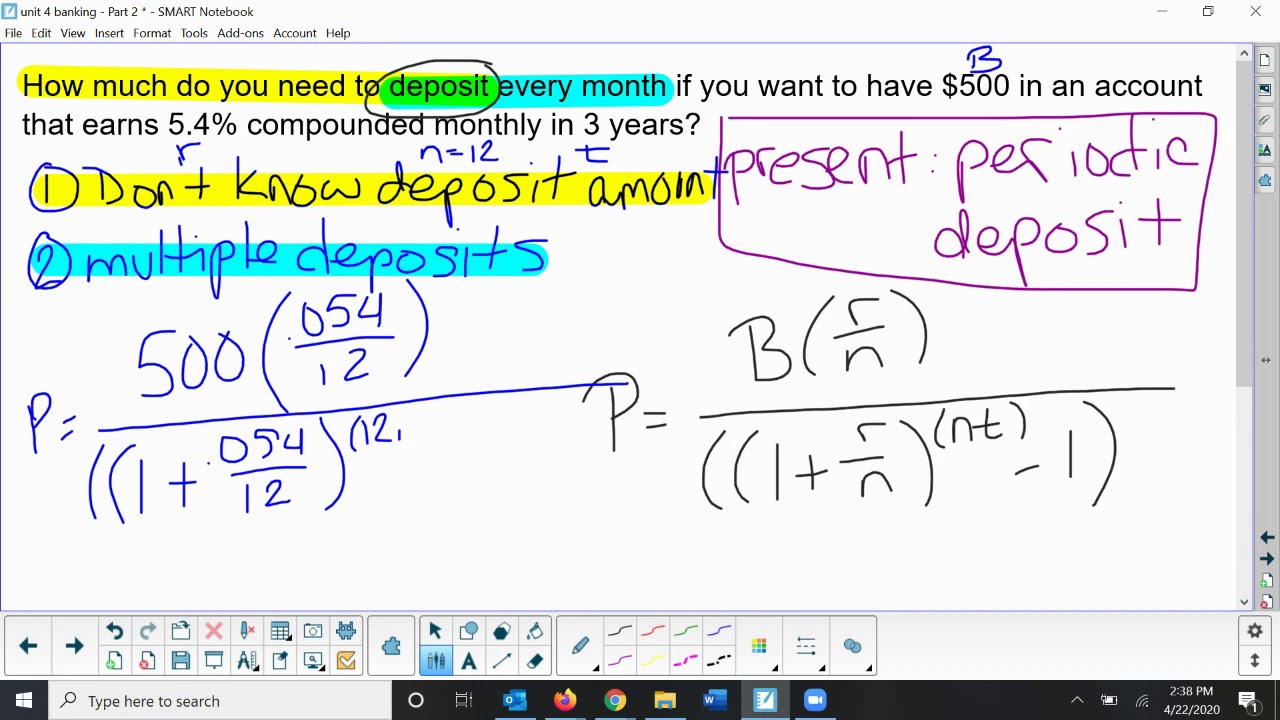 unit 4 banking - Part 2 * - SMART Notebook
File Edit View Insert Format Tools Add-ons Account Help
B
How much do you need to deposit every month if you want to have $500 in an account
that earns 5.4% compounded monthly in 3 years?
r n=12 t
① Don't know deposit amount
② multiple deposits
present: periodic
deposit
P = 500(.054/12) / ((1 + .054/12)^(12,
P = B(r/n) / ((1 + r/n)^(nt) - 1)
A
Type here to search
2:38 PM
4/22/2020
1